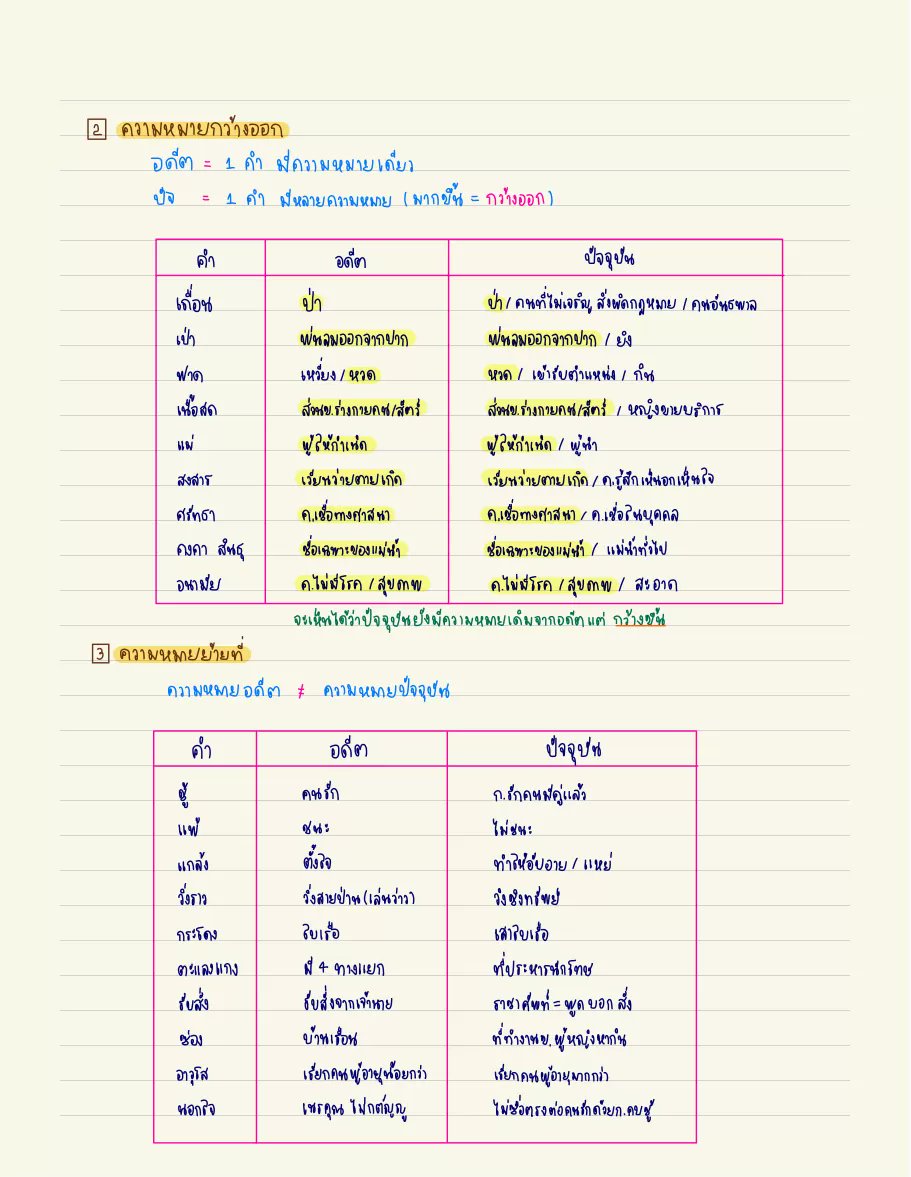 2 ความหมายกว้างออก
อดีต = 1 คำ มีความหมายเดียว
ปัจ = 1 คำ มีหลายความหมาย (มากขึ้น = กว้างออก)
คำ อดีต ปัจจุบัน
เถื่อน ป่า ป่า / คนที่ไม่เจริญ, สิ่งผิดกฎหมาย / คนอันธพาล
เป่า พ่นลมออกจากปาก พ่นลมออกจากปาก / ยิง
ฟาด เหวี่ยง / หวด หวด / เข้ารับตำแหน่ง / กิน
เนื้อสด ส่วนข.ร่างกายคน/สัตว์ ส่วนข.ร่างกายคน/สัตว์ / หญิงขายบริการ
แม่ ผู้ให้กำเนิด ผู้ให้กำเนิด / ผู้นำ
สงสาร เวียนว่ายตายเกิด เวียนว่ายตายเกิด / ค.รู้สึกเห็นอกเห็นใจ
ศรัทธา ค.เชื่อทางศาสนา ค.เชื่อทางศาสนา / ค.เชื่อในบุคคล
คงคา สินธุ ชื่อเฉพาะของแม่น้ำ ชื่อเฉพาะของแม่น้ำ / แม่น้ำทั่วไป
อนามัย ค.ไม่มีโรค / สุขภาพ ค.ไม่มีโรค / สุขภาพ / สะอาด
จะเห็นได้ว่าปัจจุบันยังมีความหมายเดิมจากอดีตแต่ กว้างขึ้น
3 ความหมายย้ายที่
ความหมายอดีต ≠ ความหมายปัจจุบัน
คำ อดีต ปัจจุบัน
ชู้ คนรัก ก.รักคนมีคู่แล้ว
แพ้ ชนะ ไม่ชนะ
แกล้ง ตั้งใจ ทำให้อับอาย / แหย่
วิ่งราว วิ่งสายป่าน (เล่นว่าว) วิ่งชิงทรัพย์
กระโดง ใบเรือ เสาใบเรือ
ตะแลงแกง มี 4 ทางแยก ที่ประหารนักโทษ
รับสั่ง รับสั่งจากเจ้านาย ราชาศัพท์ = พูด บอก สั่ง
ซ่อง บ้านเรือน ที่ทำงานข.ผู้หญิงหากิน
อาวุโส เรียกคนผู้อายุน้อยกว่า เรียกคนผู้อายุมากกว่า
นอกใจ เนรคุณ ไม่กตัญญู ไม่ซื่อตรงต่อคนรักด้วยก.คบชู้